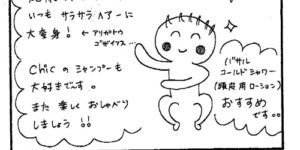 いつも サラサラ ヘアーに
大変身！ ← アリガトウ
ゴザイマス…
Chicの シャンプーも
大好きです。
また 楽しく おしゃべり
しましょう !!
バサル
コールドシャワー
(頭皮用ローション)
おすすめ
です。。